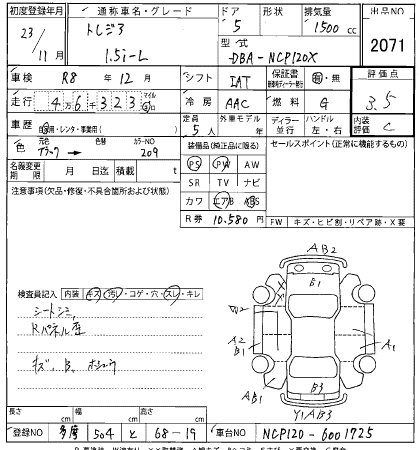 初度登録年月 通称車名・グレード ドア 形状 排気量 出品NO
23/11月 トレジア 1.5i-L 5 1500cc 2071
型式 DBA-NCP120X
車検 R8年12月 シフト IAT 保証書 有・無 評価点
走行 4万6千323 マイル 冷房 AAC 燃料 G 3.5
車歴 自家用・レンタ・事業用( ) 定員 5人 外車モデル 年 ディーラー 並行 ハンドル 左・右 内装評価 C
色 元色 ブラック 色替 カラーNO 209 装備品(純正品に限る) セールスポイント(正常に機能するもの)
名義変更期限 月 日迄 積載 t PS PW AW
注意事項(欠品・修復・不具合箇所および状態) SR TV ナビ
カワ エアB ABS
R券 10.580円
FW キズ・ヒビ割・リペア跡・X要
AB2
B1
検査員記入 内装 キズ・汚レ・コゲ・穴・スレ・キレ
W2
シートシミ
Rパネル歪
A2
B1
A1
キズ、B、
AB1
B3
Y1AB3
長さ cm 幅 cm 高さ cm
登録NO 多摩 504 と 68-19 車台NO NCP120-6001725